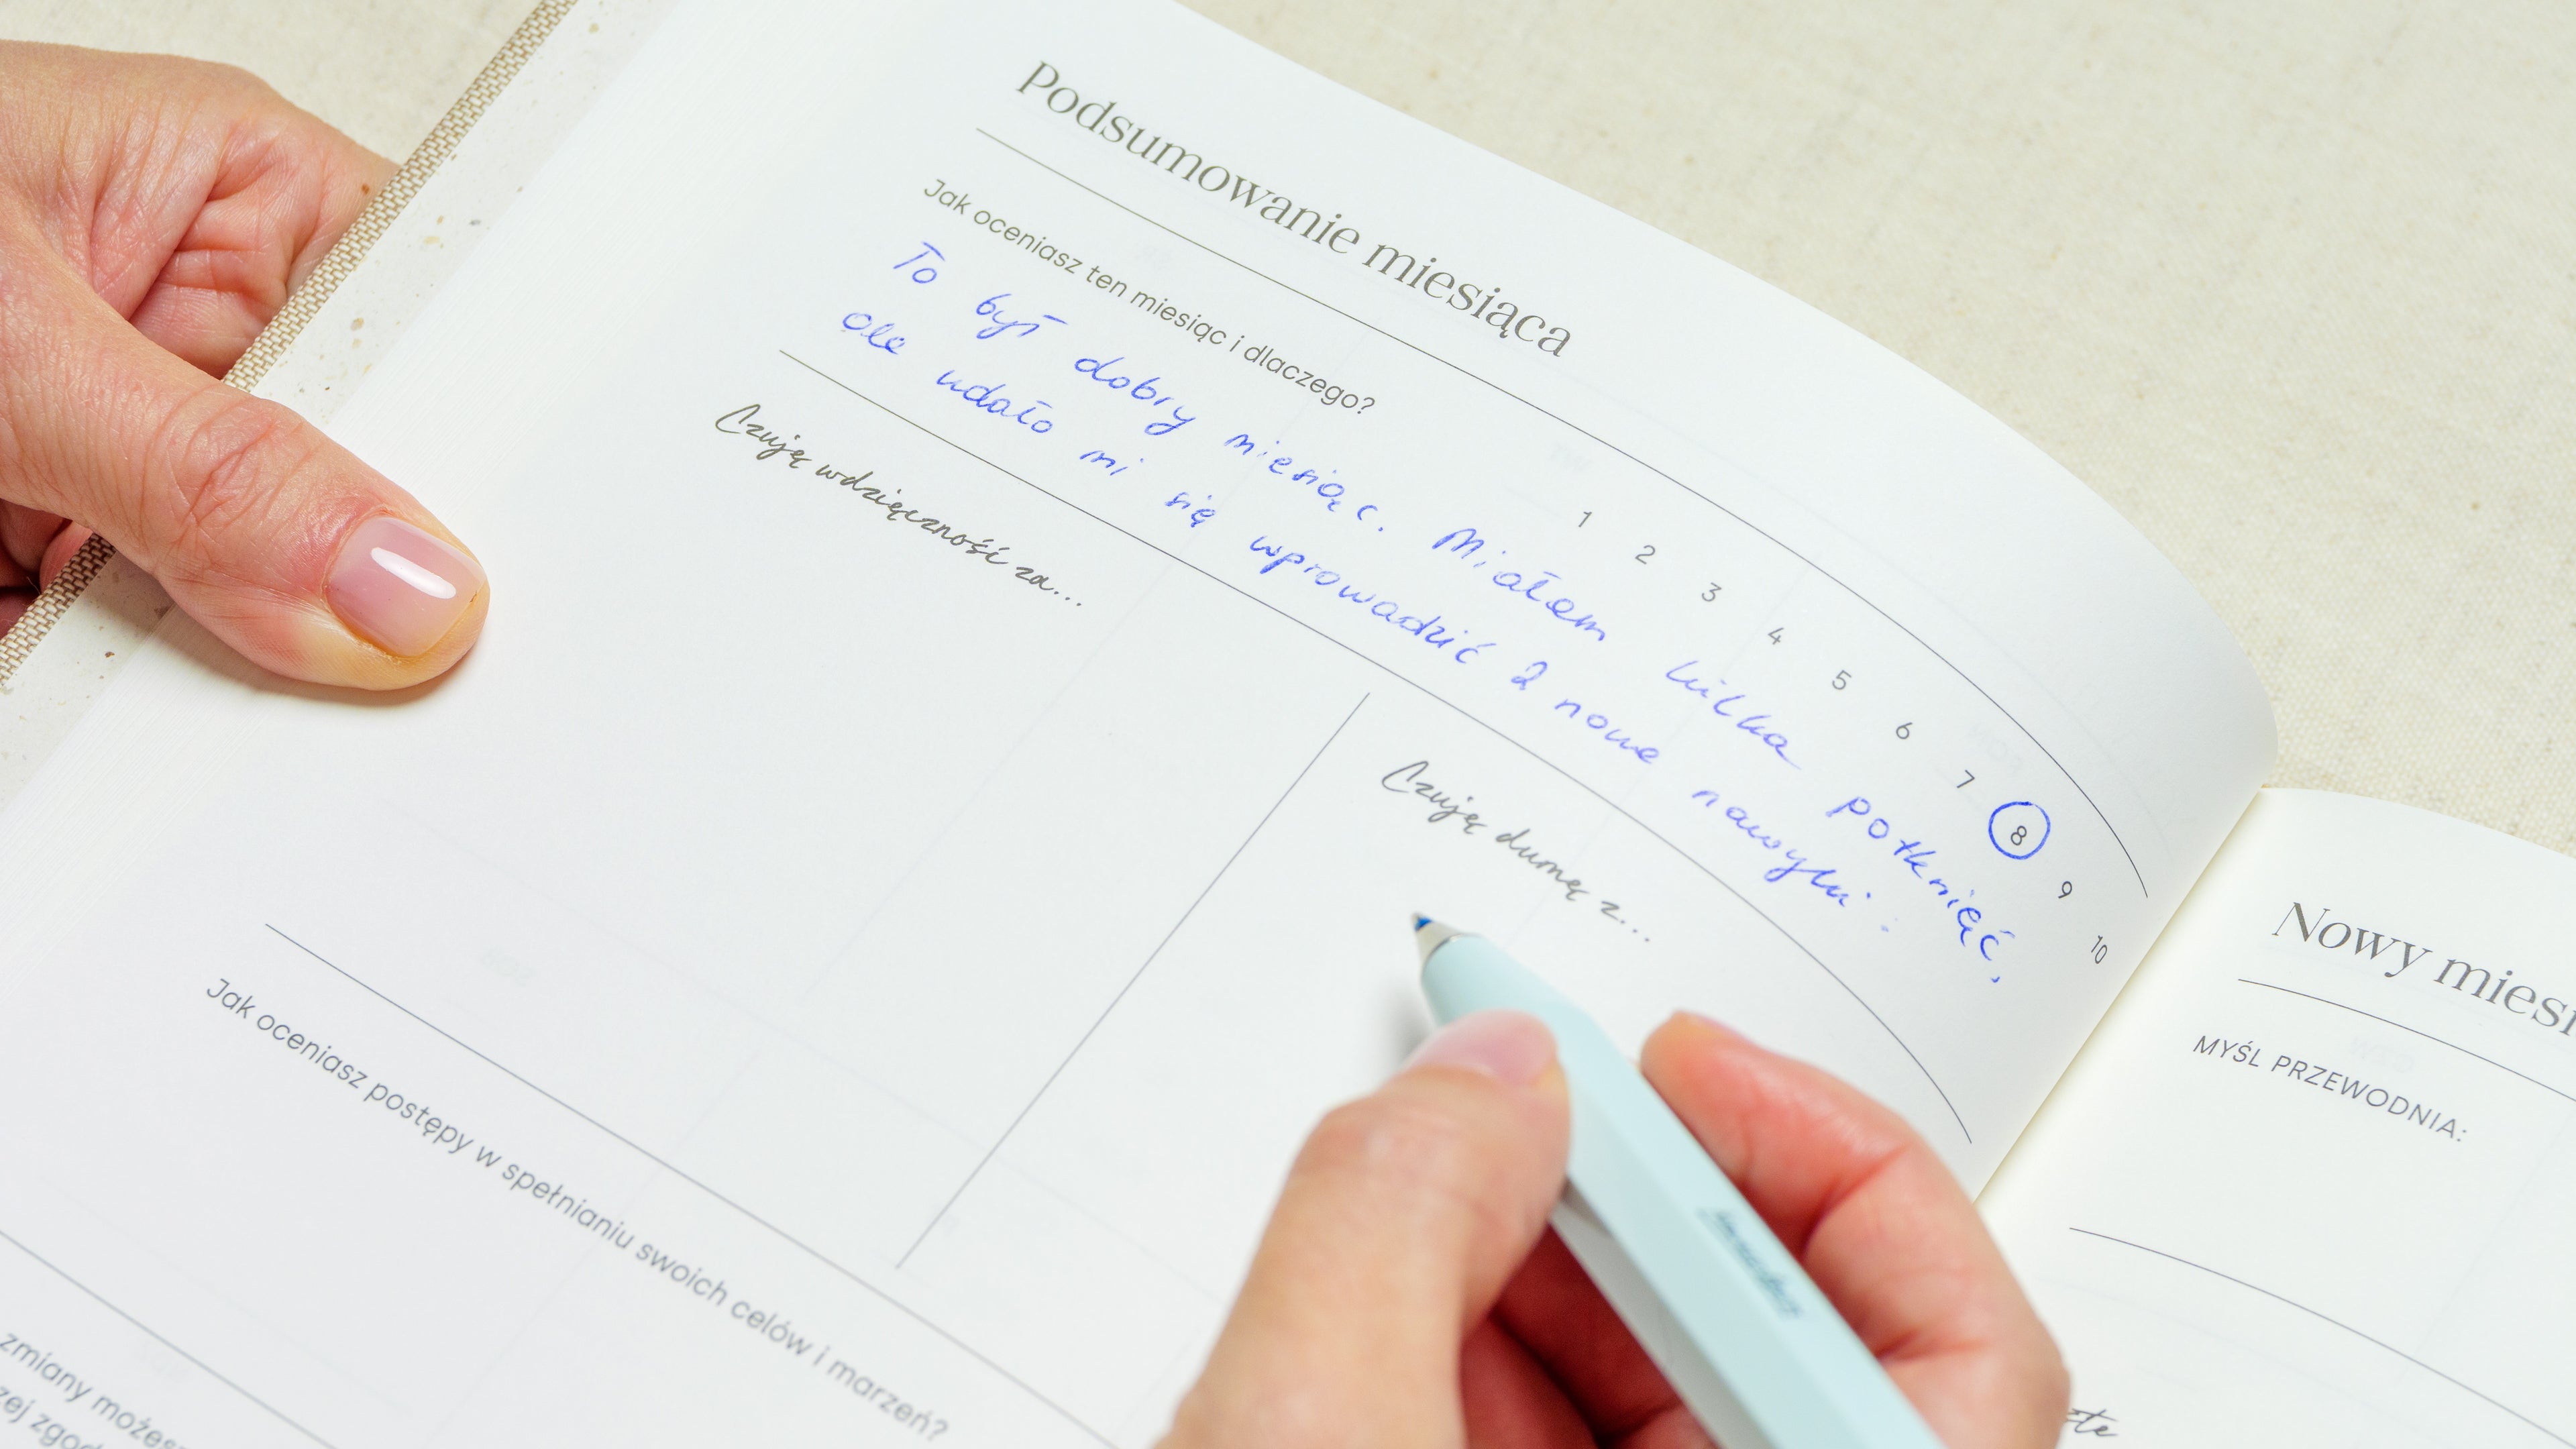 Podsumowanie miesiąca
Jak oceniasz ten miesiąc i dlaczego?
1 2 3 4 5 6 7 8 9 10
To był dobry miesiąc. Miałam kilka potknięć,
ale udało mi się wprowadzić 2 nowe nawyki :
Czuję wdzięczność za...
Czuję dumę z...
Jak oceniasz postępy w spełnianiu swoich celów i marzeń?
zmiany możes
zej zgod
Nowy miesi
MYŚL PRZEWODNIA: